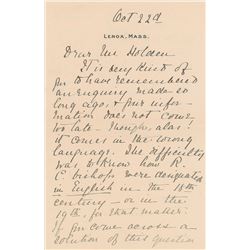 Oct 22d
LENOX, MASS.
Dear Mr Holden
It is very kind of
you to have remembered
an enquiry made so
long ago, & your infor-
mation does not come
too late - though, alas!
it comes in the wrong
language. The difficulty
was to know how R.
C bishops were designated
in English in the 18th
century - or in the
19th, for that matter.
If you come across a
solution of this question